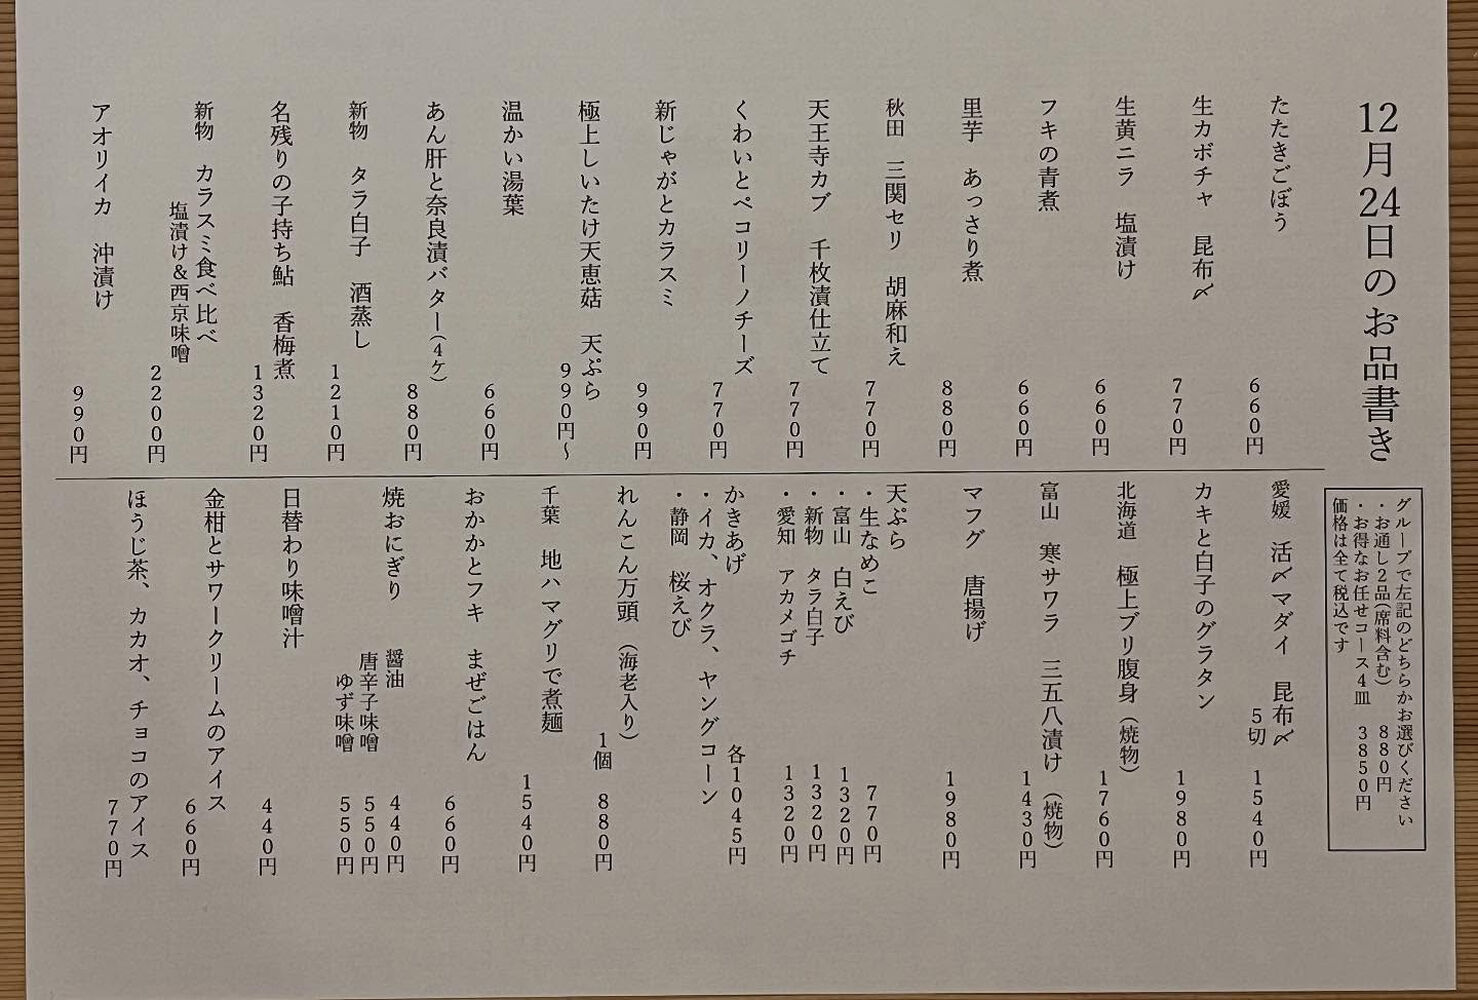 12月24日のお品書き
グループで左記のどちらかお選びください
・お通し2品(席料含む) 880円
・お得なお任せコース4皿 3850円
価格は全て税込です
たたきごぼう 660円
生カボチャ 昆布〆 770円
生黄ニラ 塩漬け 660円
フキの青煮 660円
里芋 あっさり煮 880円
秋田 三関セリ 胡麻和え 770円
天王寺カブ 千枚漬仕立て 770円
くわいとペコリーノチーズ 770円
新じゃがとカラスミ 990円
極上しいたけ天恵菇 天ぷら 990円〜
温かい湯葉 660円
あん肝と奈良漬バター(4ケ) 880円
新物 タラ白子 酒蒸し 1210円
名残りの子持ち鮎 香梅煮 1320円
新物 カラスミ食べ比べ
塩漬け&西京味噌 2200円
アオリイカ 沖漬け 990円
愛媛 活〆マダイ 昆布〆
5切 1540円
カキと白子のグラタン 1980円
北海道 極上ブリ腹身(焼物) 1760円
富山 寒サワラ 三五八漬け(焼物) 1430円
マフグ 唐揚げ 1980円
天ぷら
・生なめこ 770円
・富山 白えび 1320円
・新物 タラ白子 1320円
・愛知 アカメゴチ 1320円
かきあげ 各1045円
・イカ、オクラ、ヤングコーン
・静岡 桜えび
れんこん万頭(海老入り) 1個 880円
千葉 地ハマグリで煮麺 1540円
おかかとフキ まぜごはん 660円
焼おにぎり 醤油 440円
唐辛子味噌 550円
ゆず味噌 550円
日替わり味噌汁 440円
金柑とサワークリームのアイス 660円
ほうじ茶、カカオ、チョコのアイス 770円